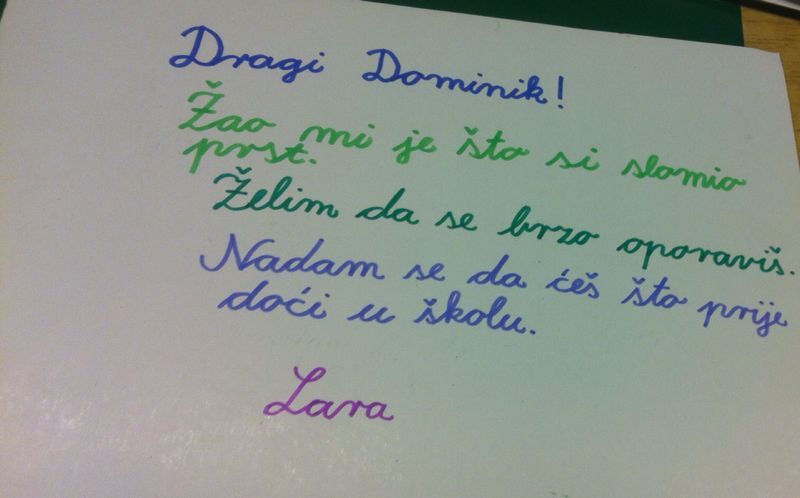 Dragi Dominik!
Žao mi je što si slomio
prst.
Želim da se brzo oporaviš.
Nadam se da ćeš što prije
doći u školu.
Lara